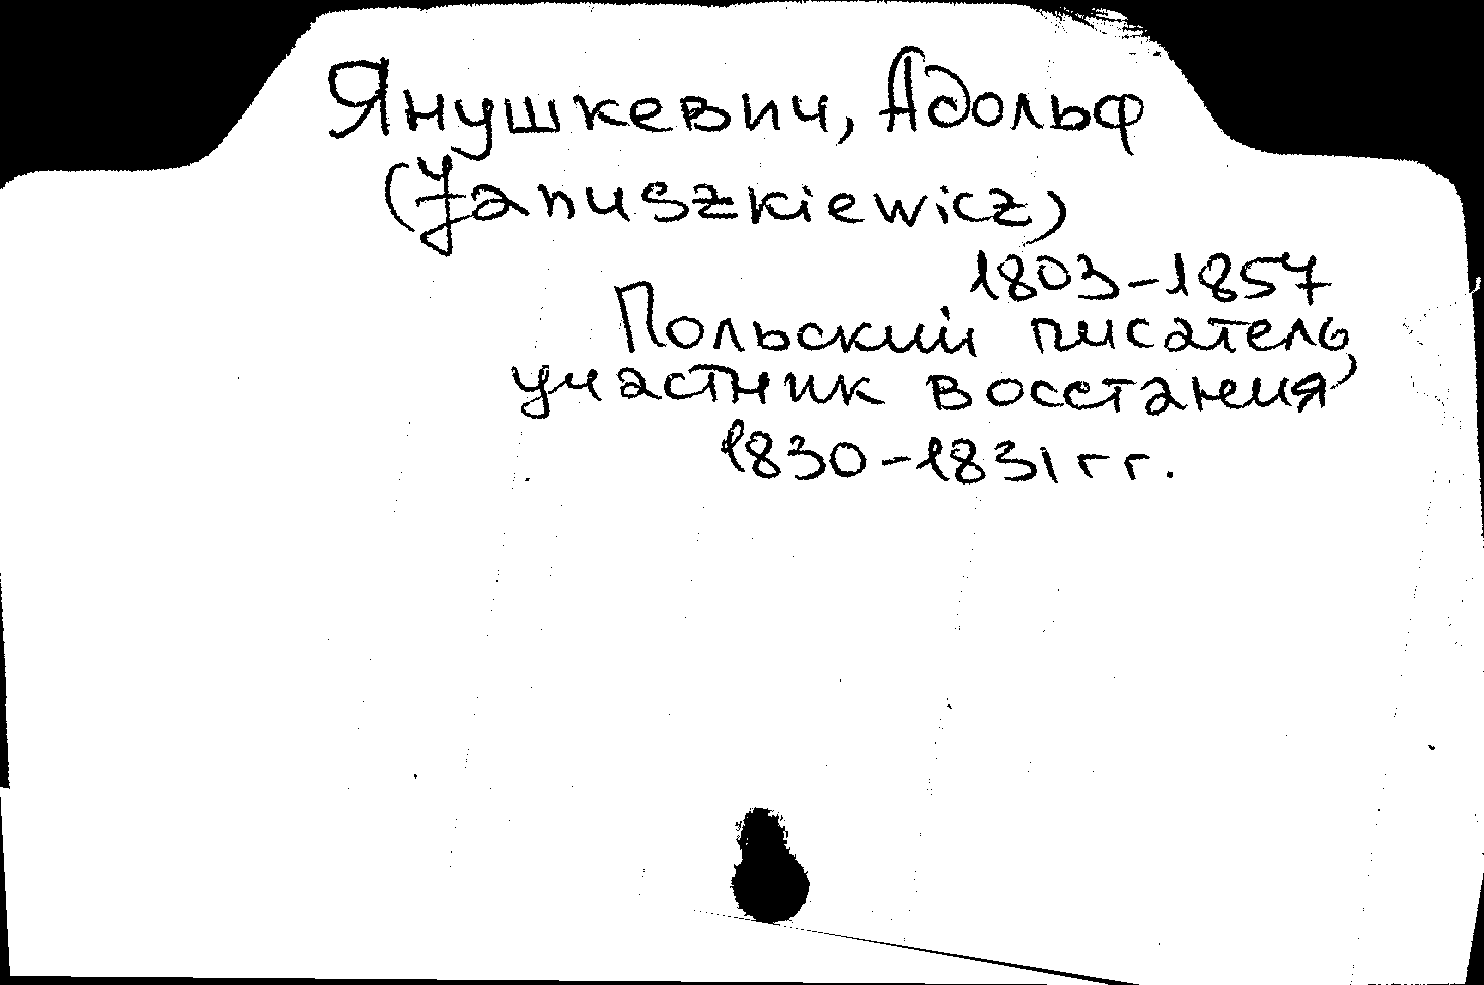 Янушкевич, Адольф
(Januszkiewicz)
1803-1857
Польский писатель,
участник восстания
1830-1831 гг.